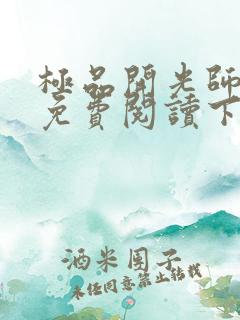 極品開光師
免費閱讀下
酒米团子
未经同意禁止转载